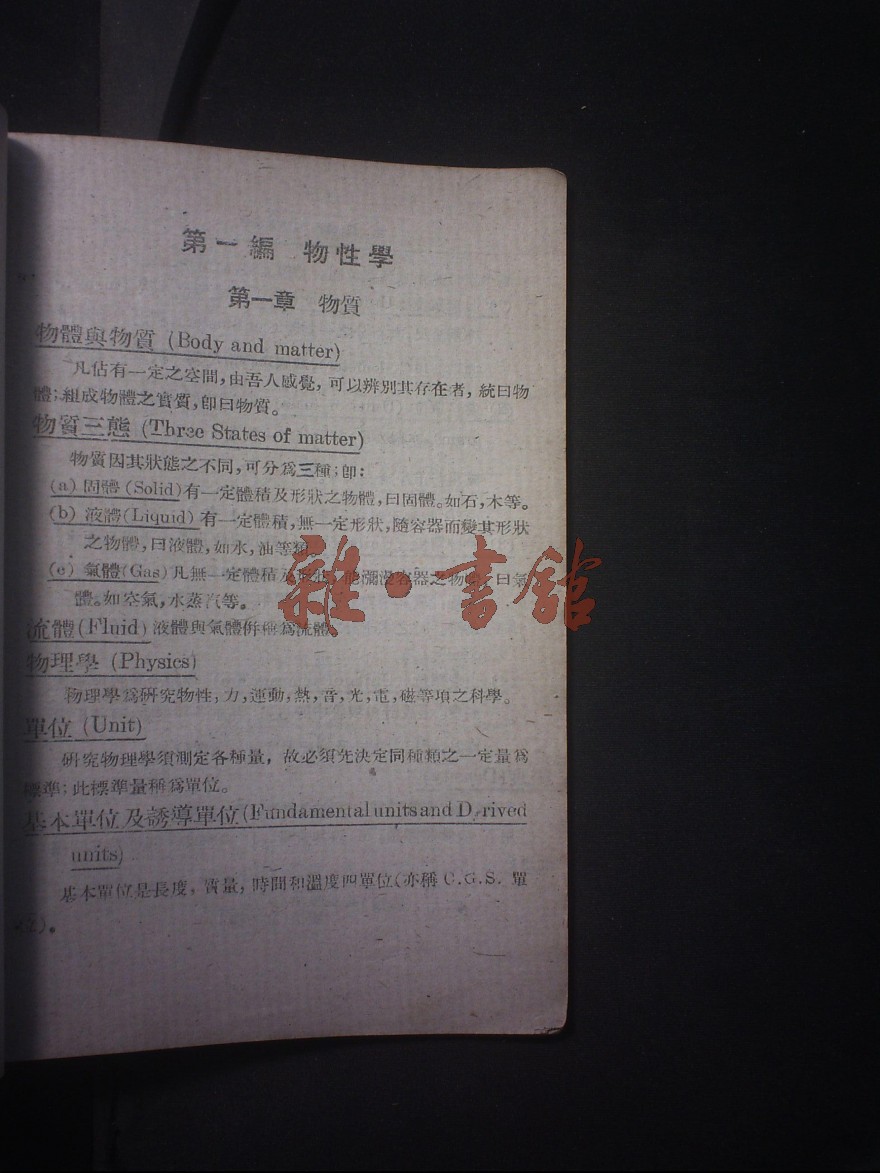 第一編 物性學
第一章 物質
物體與物質 (Body and matter)
凡佔有一定之空間,由吾人感覺,可以辨別其存在者,統曰物
體;組成物體之實質,卽曰物質。
物質三態 (Three States of matter)
物質因其狀態之不同,可分爲三種;卽:
(a) 固體 (Solid) 有一定體積及形狀之物體,曰固體。如石,木等。
(b) 液體 (Liquid) 有一定體積,無一定形狀,隨容器而變其形狀
之物體,曰液體,如水,油等類
(c) 氣體 (Gas) 凡無一定體積及形狀,能瀰漫容器之物體,曰氣
體。如空氣,水蒸汽等。
雜·書館
流體 (Fluid) 液體與氣體併稱爲流體
物理學 (Physics)
物理學爲研究物性,力,運動,熱,音,光,電,磁等項之科學。
單位 (Unit)
研究物理學須測定各種量,故必須先決定同種類之一定量爲
標準;此標準量稱爲單位。
基本單位及誘導單位 (Fundamental units and Derived
units)
基本單位是長度,質量,時間和溫度四單位(亦稱 C.G.S. 單
位)。